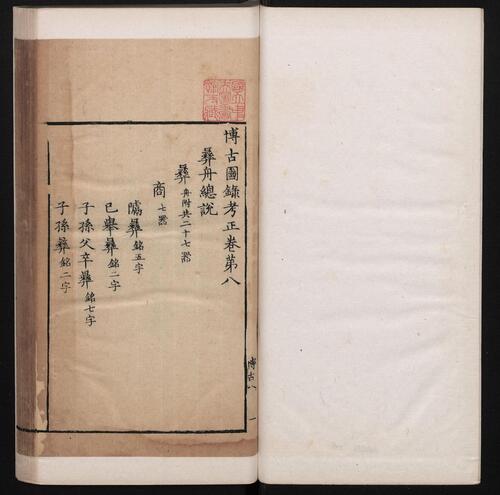 博古圖錄考正卷第八
彝舟總說
彝 舟附共二十七器
商 七器
隲彝 銘五字
己舉彝 銘二字
子孫父辛彝 銘七字
子孫彝 銘二字
博古八 一